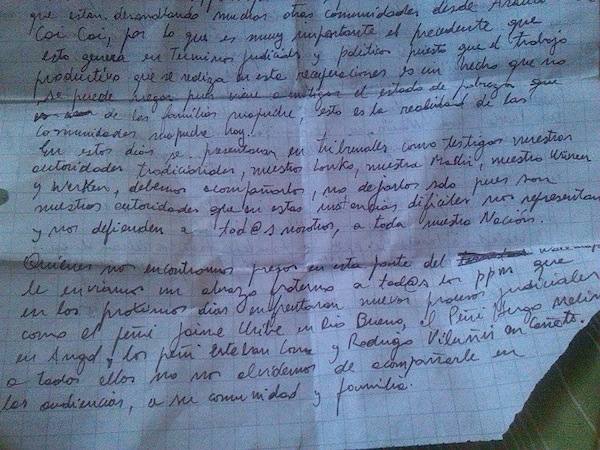 que estan desarrollando muchas otras comunidades desde
Coi Coi, por lo que es muy importante el precedente que
esto genera en Terminos judiciales y politicos puesto que el trabajo
productivo que se realiza en esta recuperaciones es un hecho que no
se puede negar pues viene a mitigar el estado de pobreza que
de las familias mapuche, esta es la realidad de las
comunidades mapuche hoy!
En estos dias se presentaran en tribunales como testigos nuestras
autoridades tradicionales, nuestros Lonko, nuestra Machi, nuestro
y Werken, debemos acompañarlos, no dejarlos solo pues son
nuestras autoridades que en estas instancias dificiles nos representan
y nos defienden a tod@s nosotros, a toda nuestra Nación.
Quiénes nos encontramos presos en esta parte del
le enviamos un abrazo fraterno a tod@s los ppm que
en los proximos dias enfrentaran nuevos procesos judiciales
como el peñi Jaime Uribe en Rio Bueno, el Peñi Hugo Melin
en Angol y los peñi Esteban y Rodrigo Viluñir en Cañete.
a todos ellos no nos olvidemos de acompañarle en
las audiencias, a su comunidad y familia.